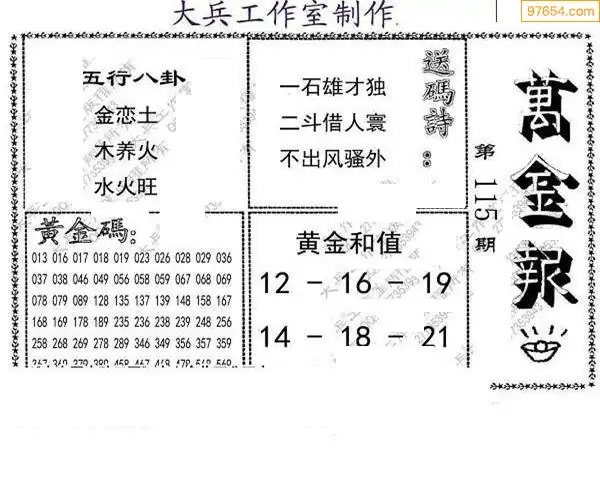 97654.com
大兵工作室制作
萬金报
第115期
五行八卦
金恋土
木养火
水火旺
送碼詩：
一石雄才独
二斗借人寰
不出风骚外
黄金碼：
013 016 017 018 019 023 026 028 029 036
037 038 046 049 056 058 059 067 068 069
078 079 089 128 135 137 139 148 158 167
168 169 178 189 235 236 238 239 248 256
258 268 269 278 289 346 348 356 357 359
黄金和值
12 － 16 － 19
14 － 18 － 21